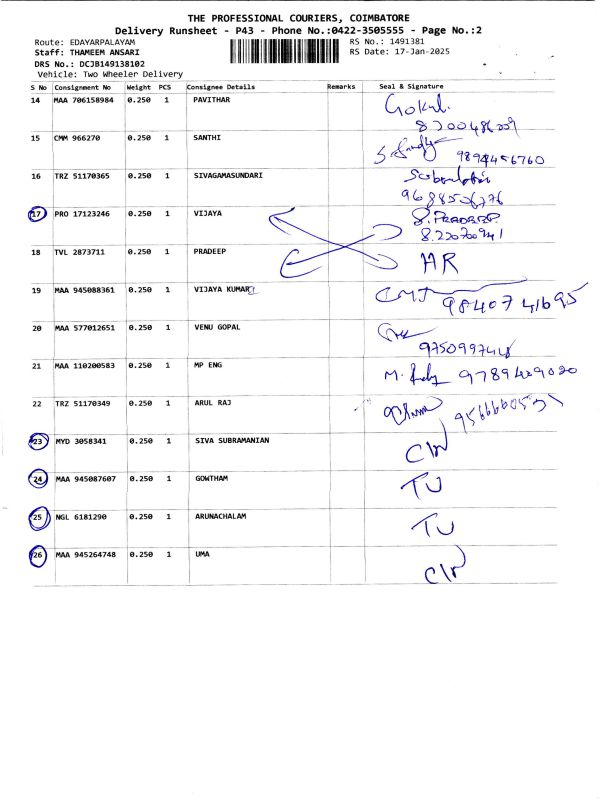 THE PROFESSIONAL COURIERS, COIMBATORE
Delivery Runsheet - P43 - Phone No.:0422-3505555 - Page No.:2
Route: EDAYARPALAYAM RS No.: 1491381
Staff: THAMEEM ANSARI RS Date: 17-Jan-2025
DRS No.: DCJB149138102
Vehicle: Two Wheeler Delivery
S No Consignment No Weight PCS Consignee Details Remarks Seal & Signature
14 MAA 706158984 0.250 1 PAVITHAR Gokul.
15 CMM 966270 0.250 1 SANTHI 9894456760
16 TRZ 51170365 0.250 1 SIVAGAMASUNDARI
17 PRO 17123246 0.250 1 VIJAYA
18 TVL 2873711 0.250 1 PRADEEP HR
19 MAA 945088361 0.250 1 VIJAYA KUMAR 9840741695
20 MAA 577012651 0.250 1 VENU GOPAL
21 MAA 110200583 1 0.250 MP ENG 9789409020
22 TRZ 51170349 0.250 1 ARUL RAJ
23 MYD 3058341 0.250 1 SIVA SUBRAMANIAN
24 MAA 945087607 0.250 1 GOWTHAM TU
25 NGL 6181290 0.250 1 ARUNACHALAM TU
26 MAA 945264748 0.250 1 UMA